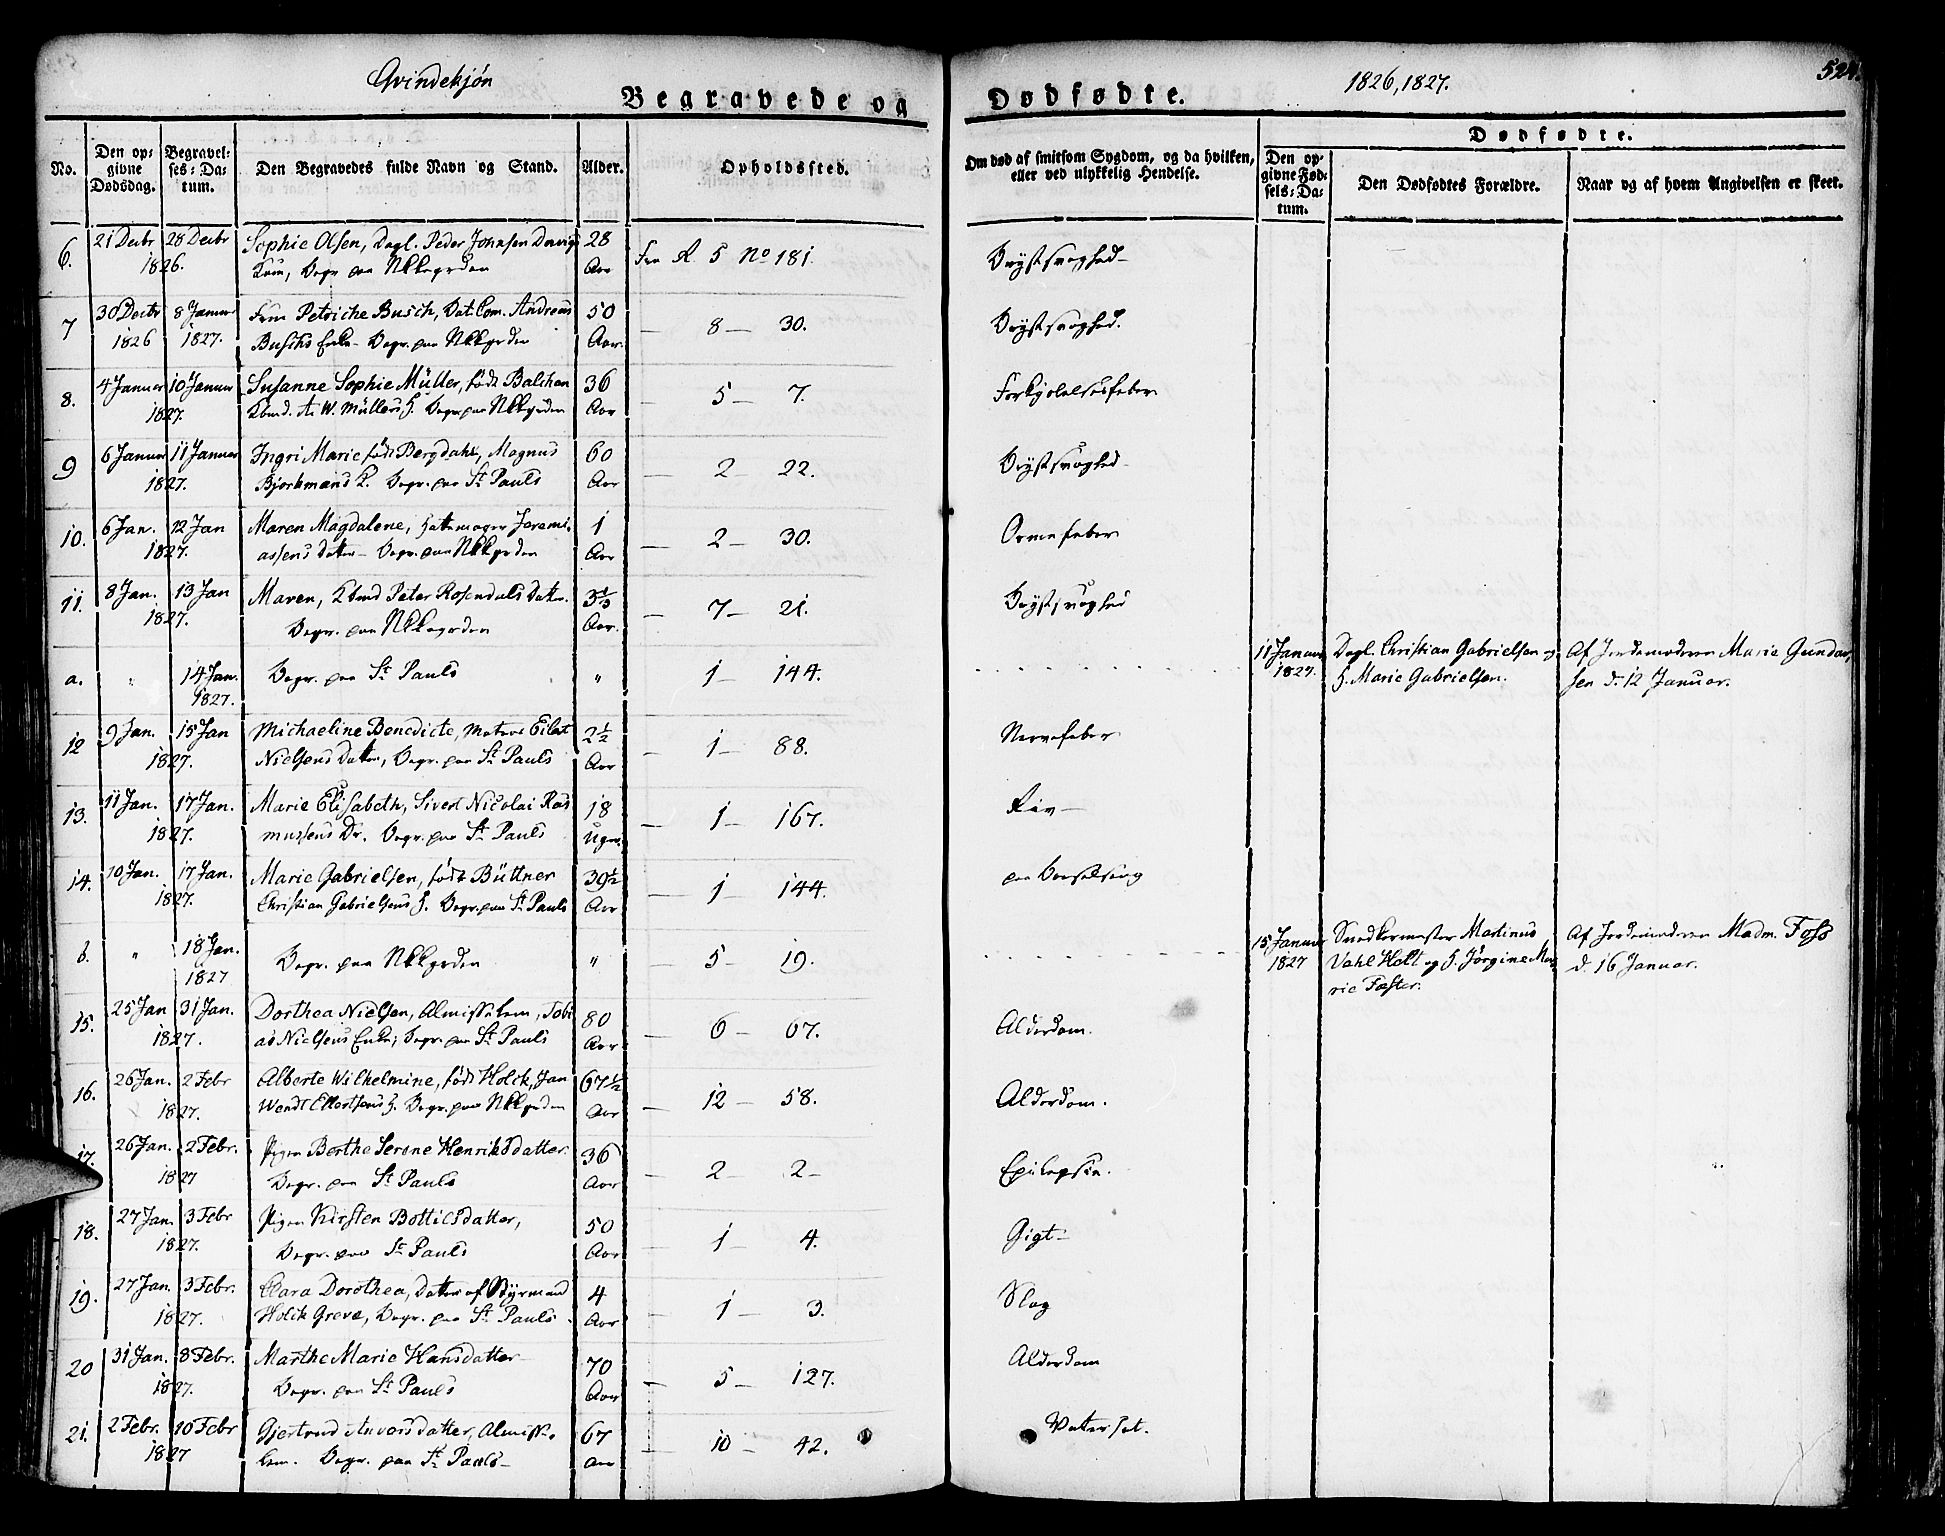 Qvindekjøn
Begravede og Dødfødte.
1826, 1827.
No. Den opgivne Dødsdag. Begravelses-Datum. Den Begravedes fulde Navn og Stand. Alder. Opholdssted. Om død af smitsom Sygdom, og da hvilken, eller ved ulykkelig Hendelse.
Dødfødte.
Den opgivne Fødsels-Datum. Den Dødfødtes Forældre. Naar og af hvem Angivelsen er skeet.
6. 21 Decbr 28 Decbr Sophie Olsen, Dagl. Peder Johnsen 28 5 No 181. Brystsvaghed
1826. Kone, Begr. paa Aar
7 30 Decbr 8 Januar Petriche Busch, Andreas 50 — 8 — 30. Brystsvaghed.
1826 1827. Buschs Enke – Begr. paa Aar
8. 4 Januar 10 Januar Susanne Sophie Müller, født Balchen 36 — 5 — 7. Forkjølelsesfeber
1827. W. Müllers H. Begr. paa Aar
9 6 Januar 11 Januar Ingri Marie født Bergdahl, Magnus 60 — 2 22. Brystsvaghed
1827. Bjorkmans K. Begr. paa St Pauls Aar
10. 6 Jan. 12 Jan Maren Magdalene, Hattemager Jeremi- 1 — 2 — 30. Ormefeber
1827. assens Datter – Begr. paa Aar
11. 8 Jan. 13 Jan Maren, Peter Rosendals Datter. 3⅓ — 7 — 21. Brystsvaghed
1827. Begr. paa Aar.
a. " 14 Jan. Begr. paa St Pauls " — 1 — 144. 11 Januar Dagl. Christian Gabrielsen og Af Jordemoderen Marie Gunder-
1827. 1827. H. Marie Gabrielsen. sen d. 12 Januar.
12 9 Jan. 15 Jan Michaeline Benedicte, Matros Eilert 2½ — 1 — 88. Nervefeber
1827. Nielsens Datter, Begr. paa St Pauls Aar
13. 11 Jan. 17 Jan. Marie Elisabeth, Sivert Nicolai Ras 18 — 1 — 167. Riv —
1827. mussens Dr. Begr. paa St Pauls Uger.
14. 10 Jan. 17 Jan. Marie Gabrielsen, født Büttner 39½ — 1 144. paa Barselseng
1827. Christian Gabrielsens H. Begr. paa St Pauls Aar
b. " 18 Jan. Begr. paa " — 5 — 19. 15 Januar Snedkermester Martinus Af Jordemoderen Madm. Foss
1827 1827 Vahl Holt og H. Jørgine Ma- d. 16 Januar.
rie Faster.
15. 25 Jan 31 Jan. Dorthea Nielsen, Almisselem, Tobi 80 — 6 — 67. Alderdom.
1827. as Nielsens Enke, Begr. paa St Pauls Aar
16. 26 Jan. 2 Febr Alberte Wilhelmine, født Holck, Jan 67½ — 12 — 58. Alderdom.
1827. Wendt Ellertsens H. Begr. paa Aar
17. 26 Jan. 2 Febr. Pigen Berthe Serene Henriksdatter. 36 — 2 2 – Epilepsie.
1827 Begr. paa St Pauls Aar
18. 27 Jan. 3 Febr Pigen Kirsten Bottilsdatter, 50 — 1 — 4. Gigt –
1827. Begr. paa St Pauls Aar
19. 27 Jan. 3 Febr. Clara Dorothea, Datter af Styrmand 4 — 1 — 3. Slag
1827. Holck Greve, Begr. paa St Pauls. Aar
20 31 Jan. 8 Febr. Marthe Marie Hansdatter 70 — 5 — 127. Alderdom
1827. Begr. paa St Pauls Aar
21. 2 Febr. 10 Febr Gjertrud Anversdatter, Almisse- 67 — 10 — 42. Vatersot.
1827 lem. Begr. paa St Pauls – Aar